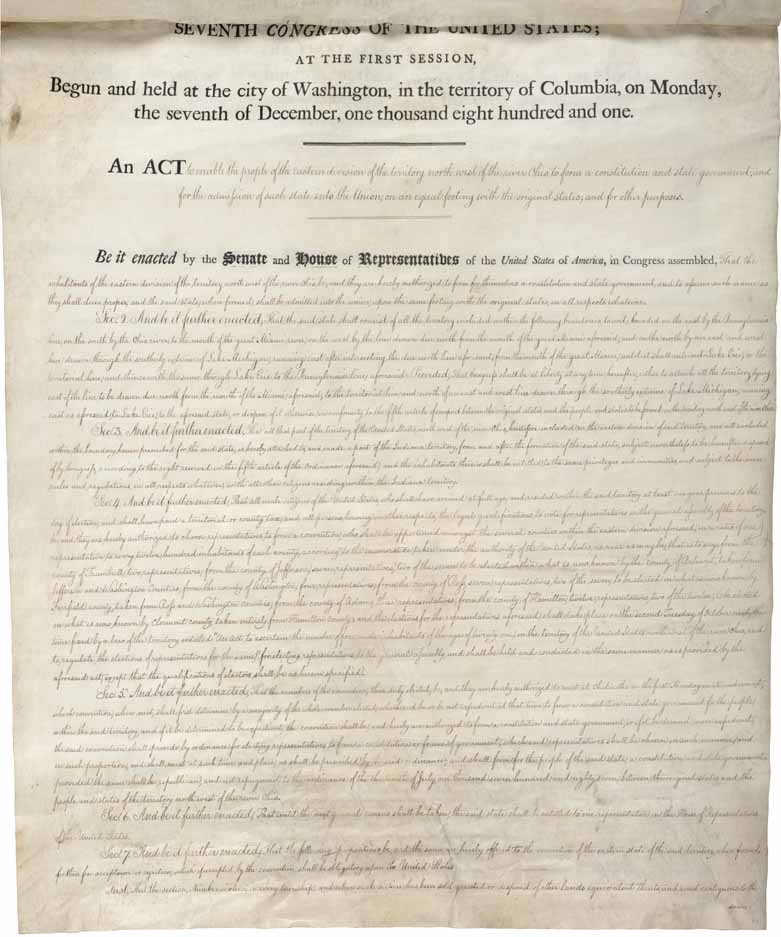 SEVENTH CONGRESS OF THE UNITED STATES;
AT THE FIRST SESSION,
Begun and held at the city of Washington, in the territory of Columbia, on Monday,
the seventh of December, one thousand eight hundred and one.
An ACT to enable the people of the eastern division of the territory north west of the river Ohio to form a constitution and state government, and
for the admission of such state into the Union, on an equal footing with the original states, and for other purposes.
Be it enacted by the Senate and House of Representatives of the United States of America, in Congress assembled, That the
inhabitants of the eastern division of the territory north west of the river Ohio, be, and they are hereby authorized to form for themselves a constitution and state government, and to assume such name as
they shall deem proper, and the said state, when formed, shall be admitted into the union, upon the same footing with the original states, in all respects whatever.
Sec. 2. And be it further enacted, That the said state shall consist of all the territory included within the following boundaries, to wit: bounded on the east by the Pennsylvania
line, on the south by the Ohio river, to the mouth of the great Miami river, on the west by the line drawn due north from the mouth of the great Miami aforesaid, and on the north by an east and west
line drawn through the southerly extreme of Lake Michigan, running east after intersecting the due north line aforesaid, from the mouth of the great Miami, until it shall intersect Lake Erie, or the
territorial line, and thence with the same, through Lake Erie, to the Pennsylvania line, aforesaid: Provided, That Congress shall be at liberty at any time hereafter, either to attach all the territory lying
east of the line to be drawn due north from the mouth of the Miami, aforesaid, to the territorial line, and north of an east and west line drawn through the southerly extreme of Lake Michigan, running
east as aforesaid to Lake Erie, to the aforesaid state, or dispose of it otherwise, in conformity to the fifth article of compact between the original states, and the people and states to be formed in the territory north west of the river Ohio.
Sec. 3. And be it further enacted, That all that part of the territory of the United States, north west of the river Ohio, heretofore included in the eastern division of said territory, and not included
within the boundary herein prescribed for the said state, is hereby attached to, and made a part of the Indiana territory, from and after the formation of the said state, subject nevertheless to be hereafter disposed
of by Congress, according to the right reserved in the fifth article of the ordinance aforesaid, and the inhabitants therein shall be entitled to the same privileges and immunities, and subject to the same
rules and regulations, in all respects whatever, with all other citizens residing within the Indiana territory.
Sec. 4. And be it further enacted, That all male citizens of the United States, who shall have arrived at full age, and resided within the said territory at least one year previous to the
day of election, and shall have paid a territorial or county tax, and all persons having in other respects, the legal qualifications to vote for representatives in the general assembly of the territory,
be, and they are hereby authorized to choose representatives to form a convention, who shall be apportioned amongst the several counties within the eastern division aforesaid, in a ratio of one
representative to every twelve hundred inhabitants of each county, according to the enumeration taken under the authority of the United States, as near as may be, that is to say: from the
county of Trumbull, two representatives; from the county of Jefferson, seven representatives, two of the seven to be elected within what is now known by the county of Belmont, taken from
Jefferson and Washington Counties; from the county of Washington, four representatives; from the county of Ross, seven representatives, two of the seven to be elected in what is now known by
Fairfield county, taken from Ross and Washington counties; from the county of Adams, three representatives; from the county of Hamilton, twelve representatives, two of the twelve to be elected
in what is now known by Clermont county, taken entirely from Hamilton county; and the elections for the representatives aforesaid, shall take place on the second Tuesday of October next, the
time fixed by a law of the territory, entitled "An Act to ascertain the number of free male inhabitants of the age of twenty one, in the territory of the United States north west of the river Ohio, and
to regulate the elections of representatives for the same," for electing representatives to the general assembly, and shall be held and conducted in the same manner as is provided by the
aforesaid act, except that the qualifications of electors shall be as herein specified.
Sec. 5. And be it further enacted, That the members of the convention, thus duly elected, be, and they are hereby authorized to meet at Chilicothe on the first Monday in november next;
which convention, when met, shall first determine by a majority of the whole number elected, whether it be or be not expedient at that time to form a constitution and state government for the people,
within the said territory, and if it be determined to be expedient, the convention shall be, and hereby are authorized to form a constitution and state government, or if it be deemed more expedient,
the said convention shall provide by ordinance for electing representatives to form a constitution or frame of government; which said representatives shall be chosen in such manner, and
in such proportion, and shall meet at such time and place, as shall be prescribed by the said ordinance; and shall form for the people of the said state, a constitution and state government;
provided the same shall be republican, and not repugnant to the ordinance of the thirteenth of July, one thousand seven hundred and eighty seven, between the original states and the
people and states of the territory north west of the river Ohio.
Sec. 6. And be it further enacted, That until the next general census shall be taken, the said state shall be entitled to one representative in the House of Representatives
of the United States.
Sec. 7. And be it further enacted, That the following propositions be, and the same are hereby offered to the convention of the eastern state of the said territory, when formed,
for their free acceptance or rejection, which, if accepted by the convention, shall be obligatory upon the United States.
First, That the section, number sixteen, in every township, and where such section has been sold, granted or disposed of, other lands equivalent thereto, and most contiguous to the